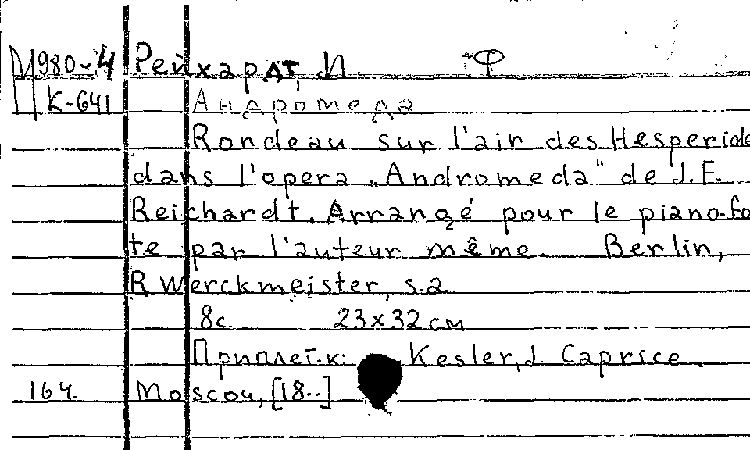 М980-4 Рейхардт, И Ф
К-641 Андромеда
Rondeau sur l'air des Hesperide
dans l'opera „Andromeda" de J.F.
Reichardt. Arrangé pour le piano-fo
te par l'auteur même. Berlin,
R. Werckmeister, s.a.
8с 23x32 см
Приплет.к: Kesler, J. Caprice.
164. Moscou, [18..]